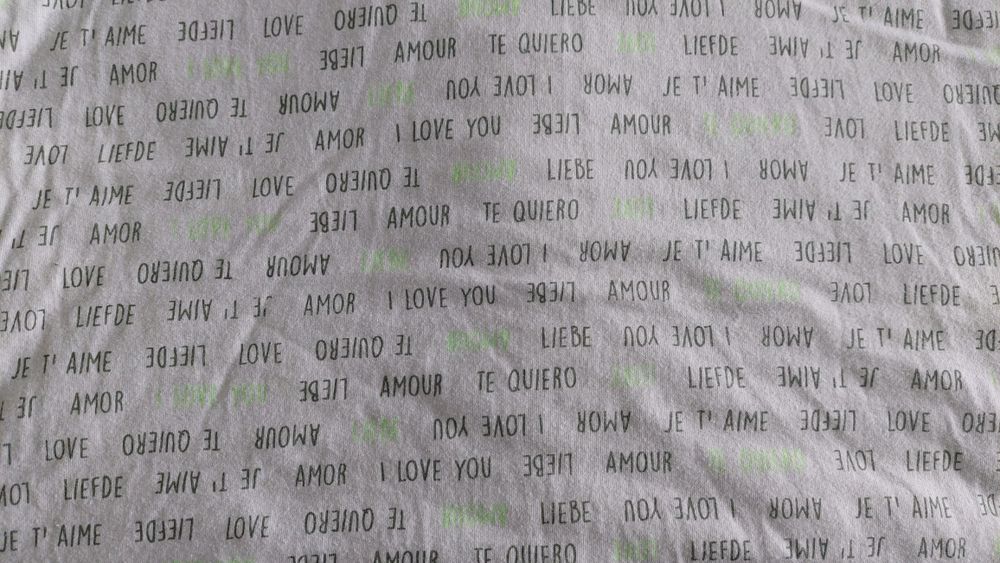 JE T' AIME LIEFDE LOVE TE QUIERO AMOUR LIEBE I LOVE YOU AMOR JE T' AIME
JE T' AIME AMOR I LOVE YOU LIEBE AMOUR TE QUIERO LOVE LIEFDE JE T' AIME AMOR
LIEFDE LOVE TE QUIERO AMOUR LIEBE I LOVE YOU AMOR JE T' AIME LIEFDE LOVE
LOVE LIEFDE JE T' AIME AMOR I LOVE YOU LIEBE AMOUR TE QUIERO LOVE LIEFDE
JE T' AIME LIEFDE LOVE TE QUIERO AMOUR LIEBE I LOVE YOU AMOR JE T' AIME
AMOR I LOVE YOU LIEBE AMOUR TE QUIERO LOVE LIEFDE JE T' AIME AMOR
LOVE TE QUIERO AMOUR LIEBE I LOVE YOU AMOR JE T' AIME LIEFDE LOVE
LOVE LIEFDE JE T' AIME AMOR I LOVE YOU LIEBE AMOUR TE QUIERO LOVE LIEFDE
JE T' AIME LIEFDE LOVE TE QUIERO AMOUR LIEBE I LOVE YOU AMOR JE T' AIME
JE AMOR I LOVE YOU LIEBE AMOUR TE QUIERO LOVE LIEFDE JE T' AIME AMOR
LOVE TE QUIERO AMOUR LIEBE I LOVE YOU AMOR JE T' AIME LIEFDE LOVE
LIEFDE JE T' AIME AMOR I LOVE YOU LIEBE AMOUR TE QUIERO LOVE LIEFDE
JE T' AIME LIEFDE LOVE TE QUIERO AMOUR LIEBE I LOVE YOU AMOR JE T' AIME
LIEBE AMOUR TE QUIERO LOVE LIEFDE JE T' AIME AMOR